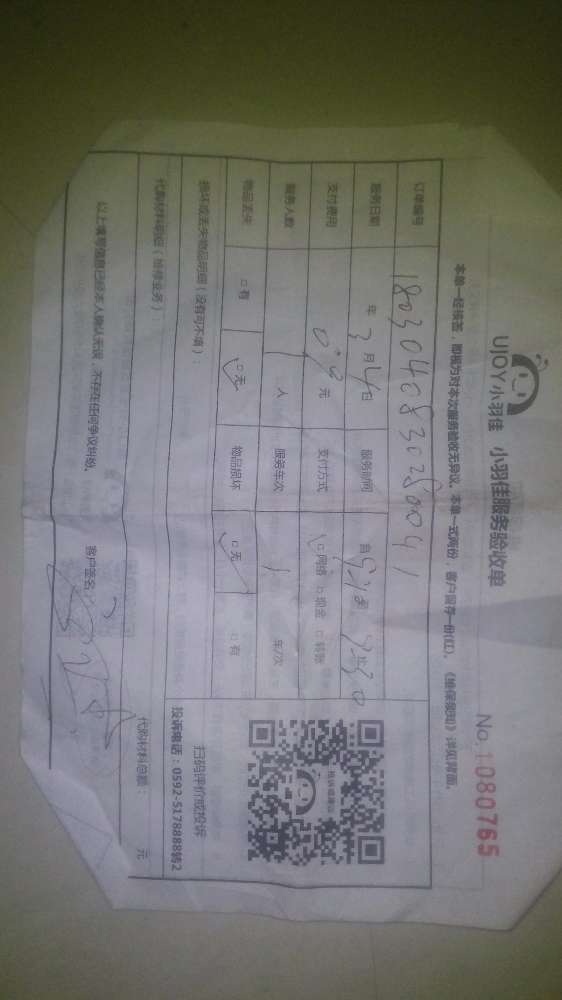 UJOY小羽佳 小羽佳服务验收单
No.1080765
本单一经接签，即视为对本次服务验收无异议。本单一式两份，客户留存一份(红)。《维保须知》详见背面。
订单编号 1803040830280041
服务日期 年 3 月 4 日 服务时间 自
支付费用 元 支付方式 网络 现金 转账
服务人数 1 人 服务车次 1 车/次
物品丢失 有 无 物品损坏 无 有
损坏或丢失物品明细（没有可不填）：
扫码评价或投诉
投诉电话：0592-5178888转2
代购材料明细（维修业务）：
代购材料总额： 元
以上填写信息已经本人确认无误，不存在任何争议纠纷。
客户签名：